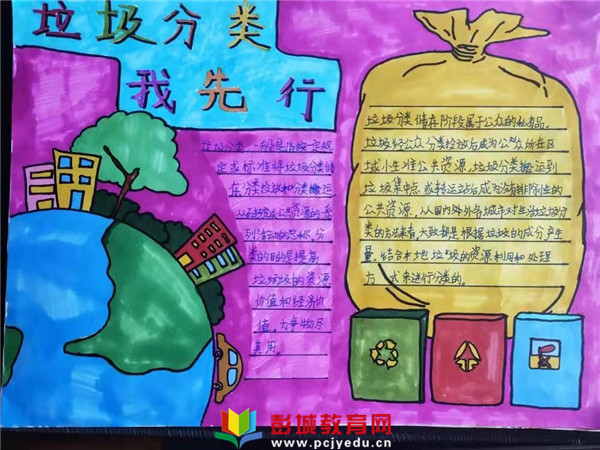 垃圾分类
我先行
垃圾分类,一般是指按一定规
定或标准将垃圾分类储
存、分类投放和分类搬运
从而转变成公共资源的一系
列活动的总称。分
类的目的是提高
垃圾的资源
价值和经济价
值,力争物尽
其用。
垃圾分类储存阶段属于公众的私有品,
垃圾经公众分类投放后成为公众所在区
域小准公共资源,垃圾分类搬运到
垃圾集中点或转运站后成为没有排除性的
公共资源。从国内外各城市对生活垃圾分
类的方法来看,大致都是根据垃圾的成分,产生
量,结合本地垃圾的资源利用和处理
方式来进行分类的。
彭城教育网
www.pcjyedu.cn